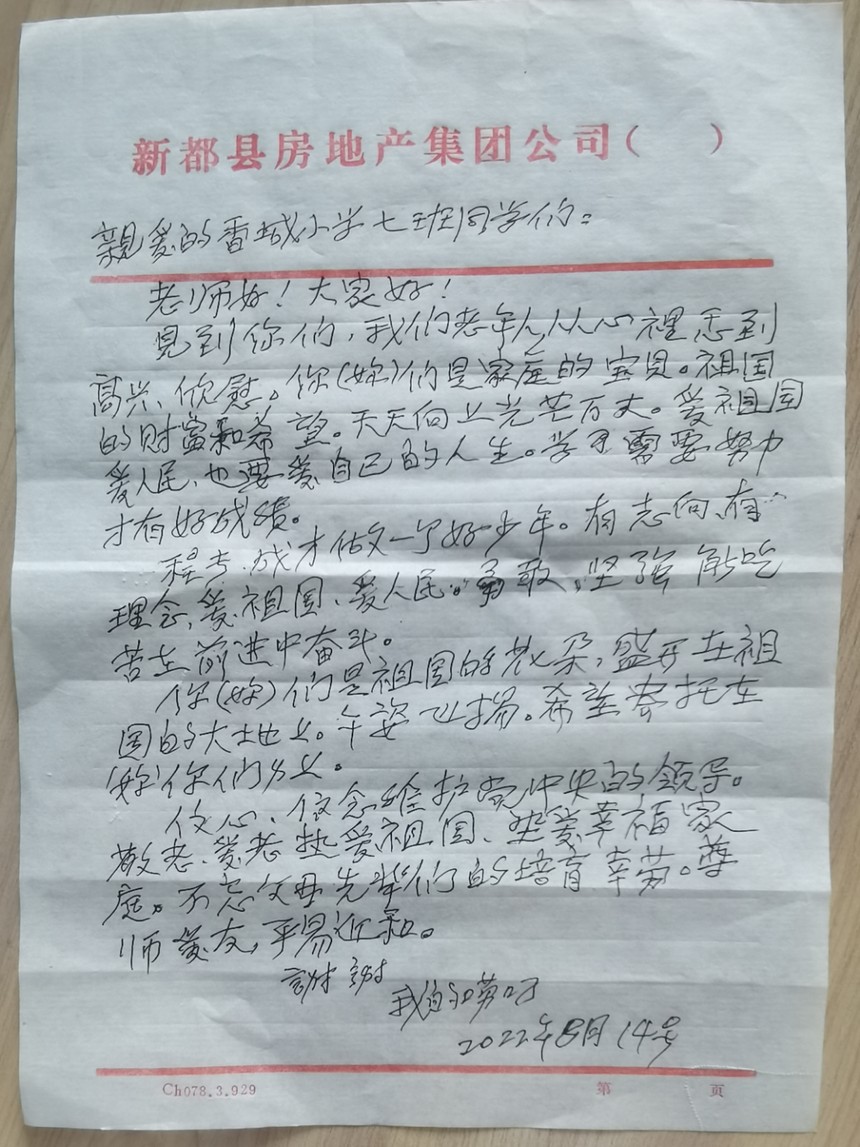 新都县房地产集团公司（　）
亲爱的香城小学七班同学们：
老师好！大家好！
见到你们，我们老年人从心裡感到
高兴、欣慰。你(妳)们是家庭的宝贝。祖国
的财富和希望。天天向上光芒万丈。爱祖国
爱人民，也要爱自己的人生。学习需要努力
才有好成绩。
成才做一个好少年。有志向、有
理念，爱祖国、爱人民。勇敢，坚强能吃
苦在前进中奋斗。
你(妳)们是祖国的花朵，盛开在祖
国的大土地上。午姿飞扬。希望寄托在
(妳)你们身上。
信心、信念维护党中央的领导。
敬老、爱老热爱祖国、热爱幸福家
庭。不忘父母先辈们的培育辛劳。尊
师爱友，平易近和。
謝謝
2022年8月14号
Ch078.3.929　第　页